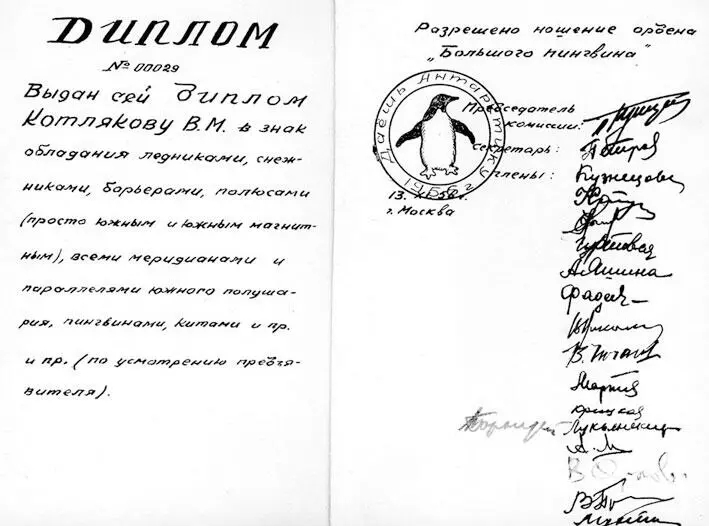 Диплом
№ 00029
Выдан сей диплом
Котлякову В.М. в знак
обладания ледниками, снеж-
никами, барьерами, полюсами
(просто южным и южным магнит-
ным), всеми меридианами и
параллелями южного полуша-
рия, пингвинами, китами и пр.
и пр. (по усмотрению предъя-
вителя).
Разрешено ношение ордена
„Большого пингвина"
Даёшь Антарктику
1956 г
Председатель
комиссии:
секретарь: Петров
члены: Кузнецова
13. XI.
г. Москва
А.Яшина
Фадеи
Мартия
Юрицкая
А.М